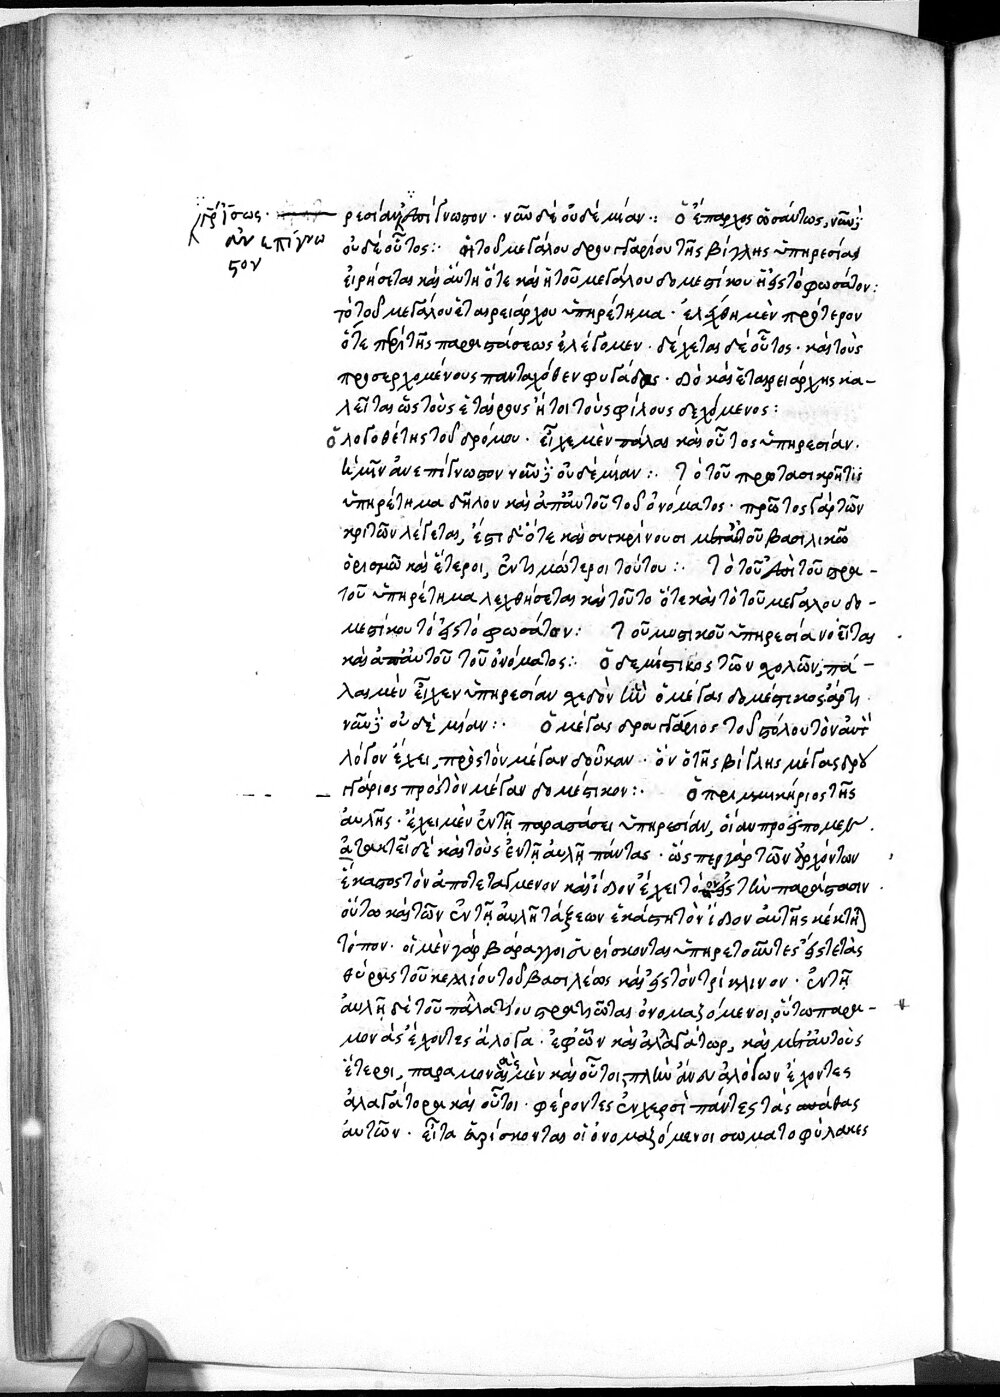 ἴσως
ἀνεπίγνω
στον
ρεσίαν ἐπίγνωστον· νῦν δὲ οὐδεμίαν: Ὁ ἔπαρχος ὡσαύτως, νῦν δ'
οὐδὲ οὗτος: ἡ τοῦ μεγάλου δρουγγαρίου τῆς βίγλης ὑπηρεσία
εἰρήσεται καὶ αὕτη ὅτε καὶ ἡ τοῦ μεγάλου δομεστίκου ἡ εἰς τὸ φωσάτον:
τὸ τοῦ μεγάλου ἑταιρειάρχου ὑπηρέτημα· ἐλέχθη μὲν πρότερον
ὅτε περὶ τῆς παραστάσεως ἐλέγομεν· δέχεται δὲ οὗτος καὶ τοὺς
προσερχομένους πανταχόθεν φυγάδας· διὸ καὶ ἑταιρειάρχης κα-
λεῖται ὡς τοὺς ἑταίρους ἤτοι τοὺς φίλους δεχόμενος:
ὁ λογοθέτης τοῦ δρόμου· εἶχε μὲν πάλαι καὶ οὗτος ὑπηρεσίαν.
ἡμῖν ἀνεπίγνωστον νῦν δ' οὐδεμίαν: τὸ τοῦ πρωτασικρῆτις
ὑπηρέτημα δῆλον καὶ ἀπ' αὐτοῦ τοῦ ὀνόματος· πρῶτος γὰρ τῶν
κριτῶν λέγεται, ἔστι δ' ὅτε καὶ συγκρίνουσι μετ' αὐτοῦ βασιλικῶ
ὁρισμῶ καὶ ἕτεροι, ἐντιμώτεροι τούτου: τὸ τοῦ ἐπὶ τοῦ στρα-
τοῦ ὑπηρέτημα λεχθήσεται καὶ τοῦτο ὅτε καὶ τὸ τοῦ μεγάλου δο-
μεστίκου τὸ εἰς τὸ φωσάτον: τοῦ μυστικοῦ ὑπηρεσία νοεῖται
καὶ ἀπ' αὐτοῦ τοῦ ὀνόματος: ὁ δομέστικος τῶν σχολῶν, πά-
λαι μὲν εἶχεν ὑπηρεσίαν σχεδὸν ἣν ὁ μέγας δομέστικος ἄρτι
νῦν δ' οὐδεμίαν: ὁ μέγας δρουγγάριος τοῦ στόλου τὸν αὐτὸν
λόγον ἔχει, πρὸς τὸν μέγαν δοῦκαν· ὃν ὁ τῆς βίγλης μέγας δρου
γγάριος πρὸς τὸν μέγαν δομέστικον: ὁ πριμμικήριος τῆς
αὐλῆς· ἔχει μὲν ἐν τῆ παραστάσει ὑπηρεσίαν, οἵαν προείπομεν.
ἀτακτεῖ δὲ καὶ τοὺς ἐν τῆ αὐλῆ πάντας· ὥσπερ γὰρ τῶν ἀρχόντων
ἕκαστος τὸν ἀποτεταγμένον καὶ ἴδιον ἔχει τόπον εἰς τὴν παράστασιν
οὕτω καὶ τῶν ἐν τῆ αὐλῆ τάξεων ἑκάστη τὸν ἴδιον αὐτῆς κέκτηται
τόπον· οἱ μὲν γὰρ βάραγγοι εὑρίσκονται ὑπηρετοῦντες εἴς τε τὰς
θύρας τοῦ κελλίου τοῦ βασιλέως καὶ εἰς τὸν τρίκλινον· ἐν τῆ
αὐλῆ δὲ τοῦ παλατίου στρατιῶται ὀνομαζόμενοι, οὕτω παρα-
μονὰς ἔχοντες ἄλογα· ἐφ' ὧν καὶ ἀλλαγάτωρ, καὶ μετ' αὐτοὺς
ἕτεροι, παραμοναὶ μὲν καὶ οὗτοι, πλὴν ἄνευ ἀλόγων ἔχοντες
ἀλλαγάτορα καὶ οὗτοι· φέροντες ἐν χερσὶ πάντες τὰς σπάθας
αὐτῶν· εἶτα εὑρίσκονται οἱ ὀνομαζόμενοι σωματοφύλακες